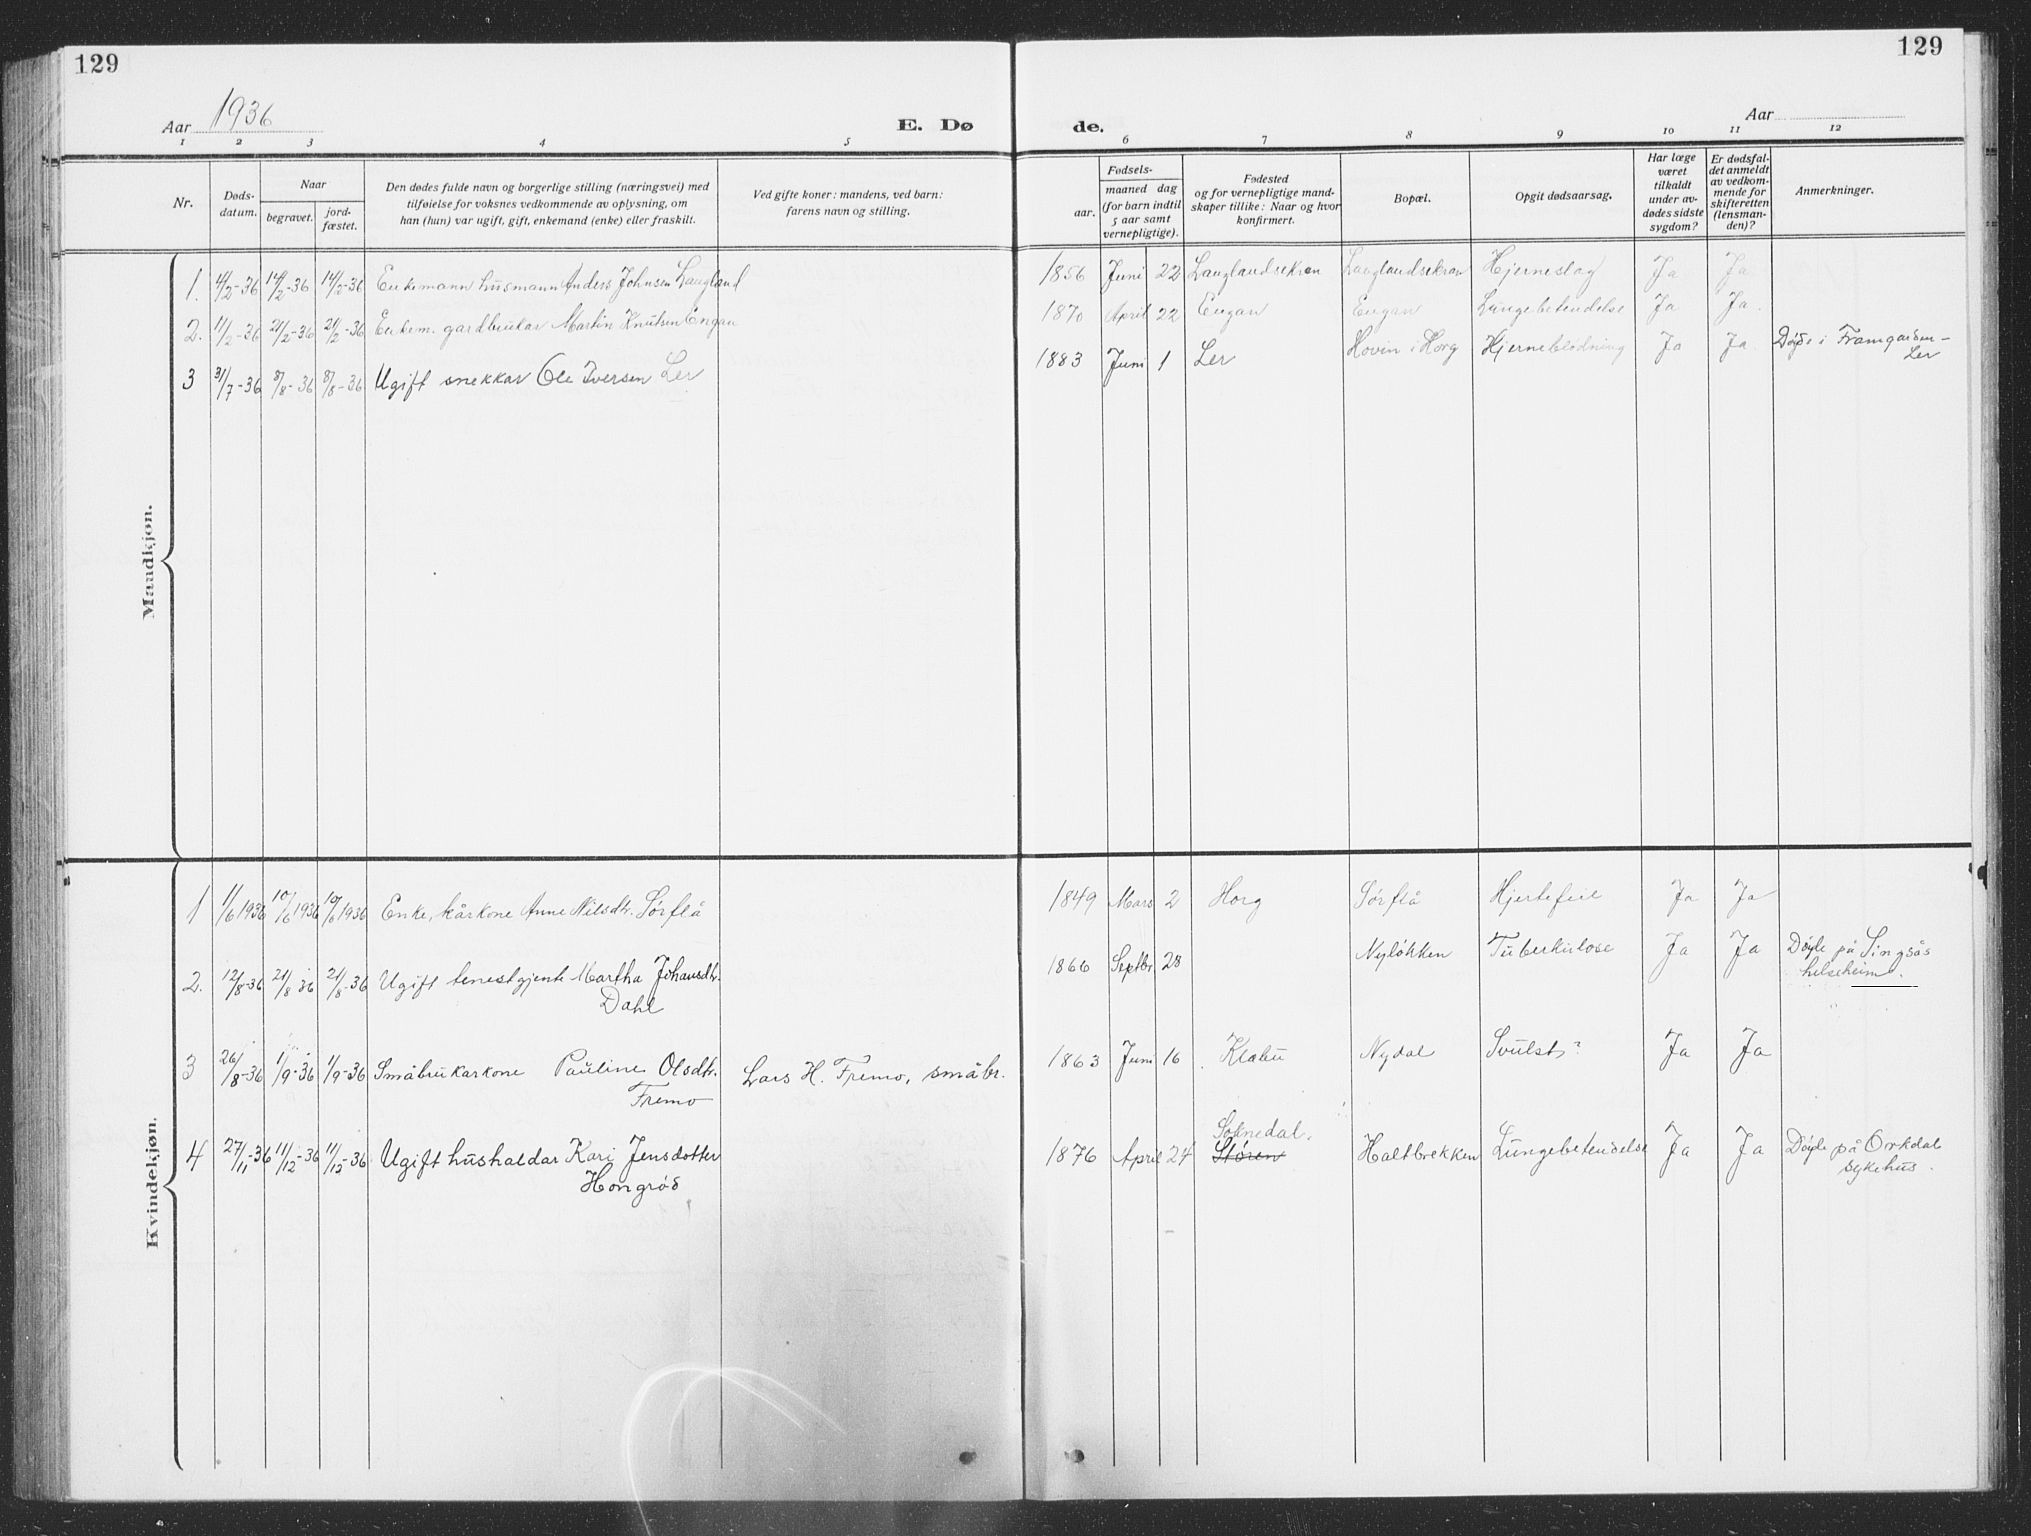 129
129
Aar 1936
E. Dø
de.
Aar
1 2 3 4 5 6 7 8 9 10 11 12
Nr.
Døds-
datum.
Naar
begravet.
jord-
fæstet.
Den dødes fulde navn og borgerlige stilling (næringsvei) med
tilføielse for voksnes vedkommende av oplysning, om
han (hun) var ugift, gift, enkemand (enke) eller fraskilt.
Ved gifte koner: mandens, ved barn:
farens navn og stilling.
Fødsels-
aar.
maaned dag
(for barn indtil
5 aar samt
vernepligtige).
Fødested
og for vernepligtige mand-
skaper tillike: Naar og hvor
konfirmert.
Bopæl.
Opgit dødsaarsag.
Har læge
været
tilkaldt
under av-
dødes sidste
sygdom?
Er dødsfal-
det anmeldt
av vedkom-
mende for
skifteretten
(lensman-
den)?
Anmerkninger.
Mandkjøn.
1. 4/2-36 14/2-36 14/2-36 Enkemann husmann Anders Johnsen Langland 1856 Juni 22 Langlandsekran Langlandsekran Hjerneslag Ja Ja
2. 11/2-36 21/2-36 21/2-36 Enkem. gardbrukar Martin Knutsen Engan 1870 April 22 Engan Engan Lungebetendelse Ja Ja.
3 31/7-36 8/8-36 8/8-36 Ugift snekkar Ole Iversen Ler 1883 Juni 1 Ler Hovin i Horg Hjerneblödning Ja Ja Döde i Framgarden-
Ler
Kvindekjøn.
1 1/6 1936 10/6 1936 10/6 1936 Enke, kårkone Anne Nilsdtr. Sörflå 1849 Mars 2 Horg Sörflå Hjertefeil Ja Ja
2. 12/8-36 21/8 36 21/8-36 Ugift tenestgjente Martha Johansdtr.
Dahl 1866 Septbr 28 Nylökken Tuberkulose Ja Ja Döyde på Singsås
helseheim.
3 26/8-36 1/9-36 1/9-36 Småbrukarkone Pauline Olsdtr.
Fremo Lars H. Fremo, småbr. 1863 Juni 16 Klæbu Nydal Svulst? Ja Ja
4 27/11-36 11/12-36 11/12-36 Ugift hushaldar Kari Jensdotter
Hongrøs 1876 April 24 Soknedal.
Støren Haltbrekken Lungebetendelse Ja Ja Döyde på Orkdal
sykehus.